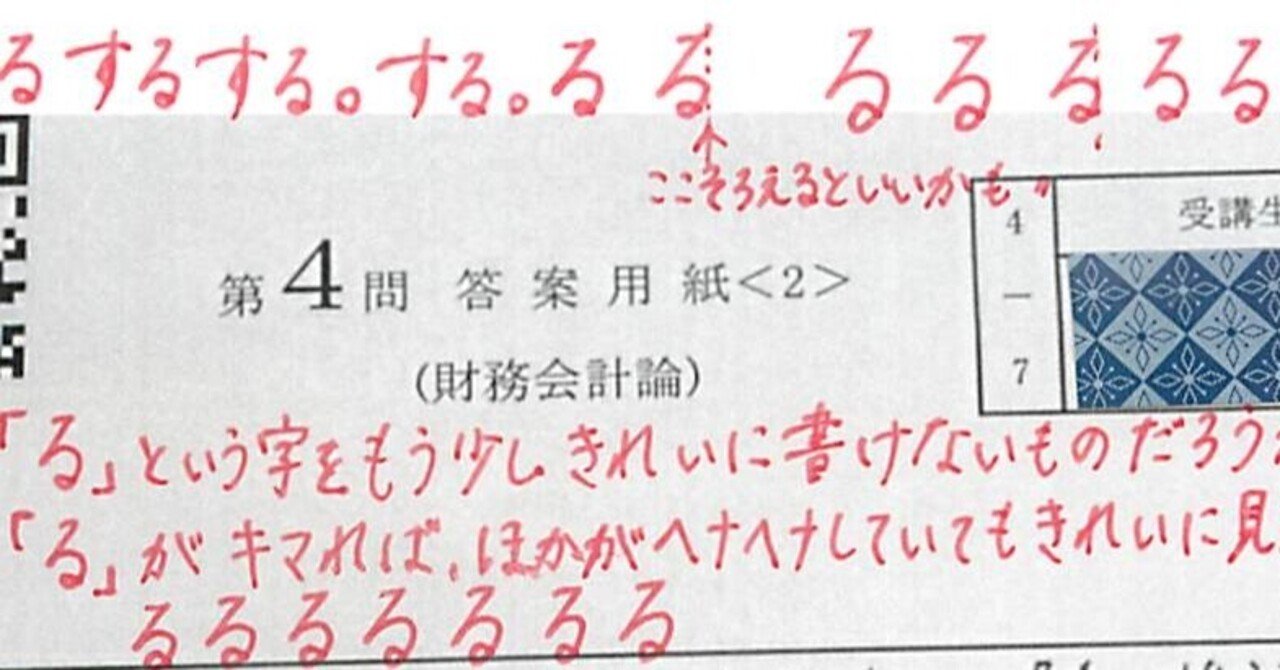 るするする。する。る る る る る る る
ここそろえるといいかも〃
4 受講生
第4問 答案用紙<2>
―
7
(財務会計論)
「る」という字をもう少しきれいに書けないものだろう
「る」がキマれば、ほかがヘナヘナしていてもきれいに見
るるるるるるる